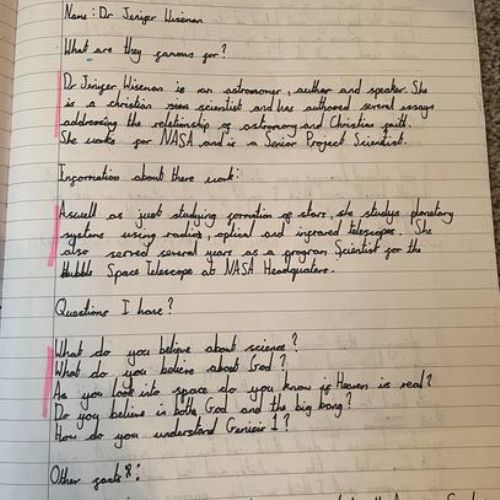 Name: Dr Jenifer Wiseman
What are they famous for?
Dr Jenifer Wiseman is an astronomer, author and speaker. She
is a christian scientist and has authored several essays
addressing the relationship of astronomy and Christian faith.
She works for NASA and is a Senior Project Scientist.
Information about there work:
Aswell as just studying formation of stars, she studys planetary
systems using radio, optical and infrared telescopes. She
also served several years as a program Scientist for the
Hubble Space Telescope at NASA Headquaters.
Questions I have?
What do you believe about science?
What do you believe about God?
As you look into space do you know if Heaven is real?
Do you believe in both God and the big bang?
How do you understand Genisis 1?
Other facts: